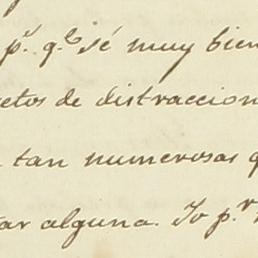 p.r q.e sé muy bien
etos de distraccion
tan numerosas q
ar alguna. Yo p.r